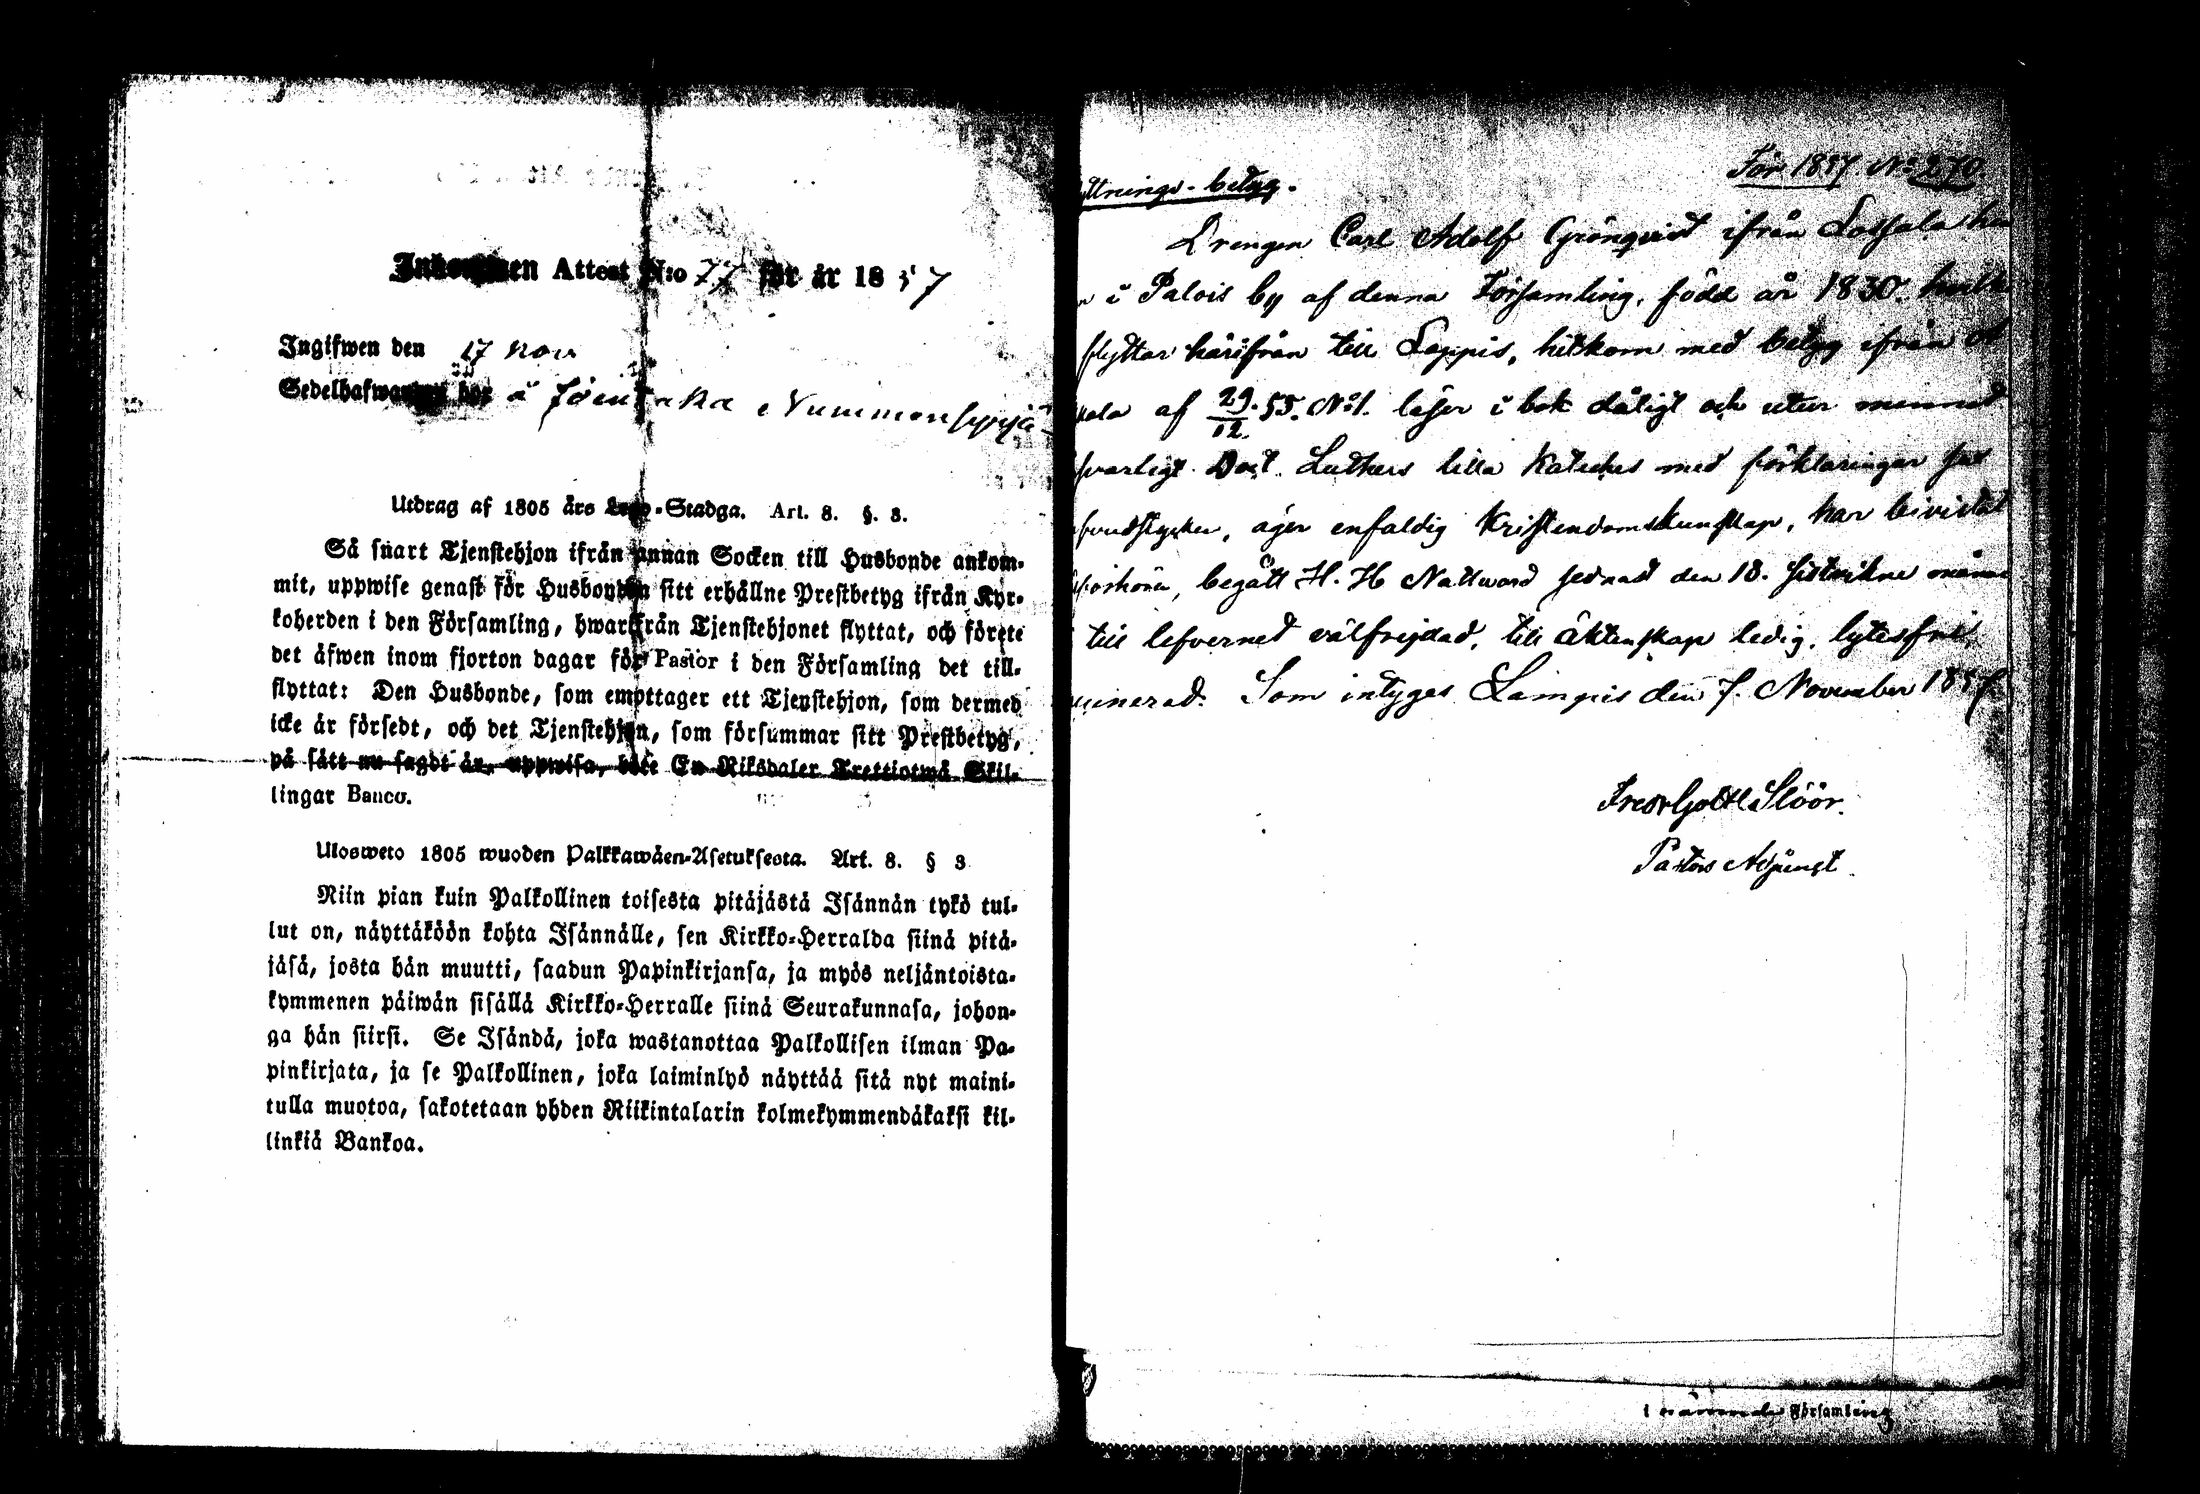 Inkommen Attest N:o 77 för år 1857
Ingifwen den 17 Nov
Sedelhafwaren bor i Nummenkylä
Utdrag af 1805 års Lego-Stadga. Art. 8. §. 3.
Så snart Tjenstehjon ifrån annan Socken till Husbonde ankom-
mit, uppwise genast för Husbonden sitt erhållne Prestbetyg ifrån Kyr-
koherden i den Församling, hwarifrån Tjenstehjonet flyttat, och förete
det äfwen inom fjorton dagar för Pastor i den Församling det till-
flyttat: Den Husbonde, som emottager ett Tjenstehjon, som dermed
icke är försedt, och det Tjenstehjon, som försummar sitt Prestbetyg,
på sätt nu sagdt är, uppwisa, böte En Riksdaler Trettiotwå Skil-
lingar Banco.
Ulosweto 1805 wuoden Palkkawäen-Asetuksesta. Art. 8. § 3
Niin pian kuin Palkollinen toisesta pitäjästä Isännän tykö tul-
lut on, näyttäköön kohta Isännälle, sen Kirkko-Herralda siinä pitä-
jäsä, josta hän muutti, saadun Papinkirjansa, ja myös neljäntoista-
kymmenen päiwän sisällä Kirkko-Herralle siinä Seurakunnasa, johon-
ga hän siirsi. Se Isändä, joka wastanottaa Palkollisen ilman Pa-
pinkirjata, ja se Palkollinen, joka laiminlyö näyttää sitä nyt maini-
tulla muotoa, sakotetaan yhden Riikintalarin kolmekymmendäkaksi kil-
linkiä Bankoa.
För 1857. No 270.
ttnings-betyg.
Drengen Carl Adolf Grönqvist ifrån Lassala
i Palois by af denna Församling, född år 1830.
flyttar härifrån till Loppis, hitkom med betyg ifrån
ala af 29/12 55. No 1. läser i bok dåligt och utur minnet
svarligt Doct. Luthers lilla Kateches med förklaringar
huudstycken, äger enfaldig Kristendomskunskap, har bivistat
förhören, begått H. H Nattward sednast den 18. sistvikne
till lefvernet välfrejdad, till äktenskap ledig, lytesfri,
cinerad. Som intygas Lampis den 7. November 1857
Fredr Gottl Slöör.
Pastors Adjunct.
i nämnde Församling